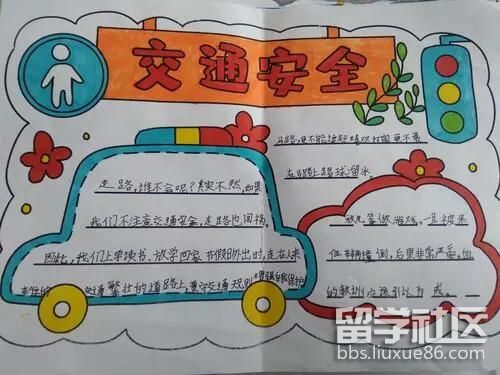 交通安全
走路，谁不会呢？其实不然，如果
我们不注意交通安全，走路也闯祸。
因此，我们上学读书、放学回家、节假日外出时，走在人来
车往的交通繁忙的道路上，遵守交通规则增强自我保护
马路，更不能追赶嬉戏打闹更不要
在马路上踢球溜冰
放风筝做游戏，一旦被来
往车辆撞倒，后果非常严重。血
的教训应该引以为戒
留学社区
bbs.liuxue86.com